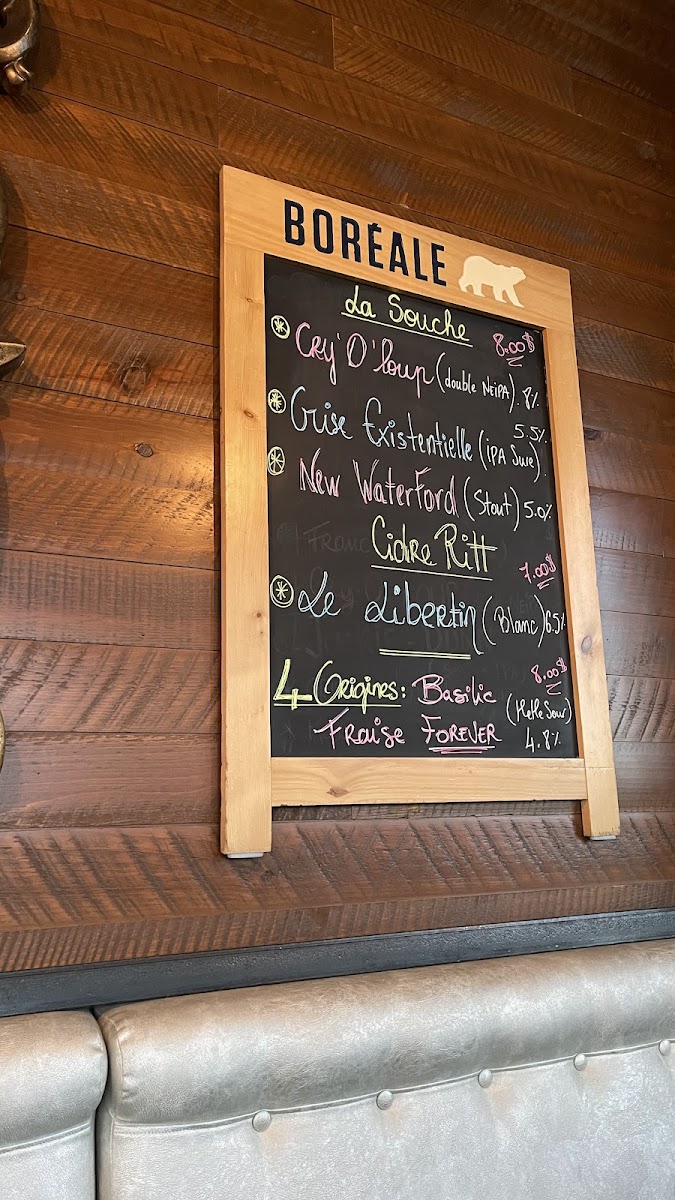 BORÉALE
La Souche
Cry'O'loup (double NEIPA). 8% 8.00$
Crise Existentielle (iPA Sure) 5.5%
New Waterford (Stout) 5.0%
Cidre Ritt
7.00$
Le Libertin (Blanc) 6.5%
4 Origines: Basilic 8.00$
Fraise FOREVER (Kettle Sour) 4.8%